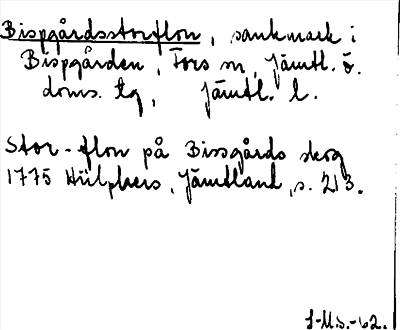 Bispgårdsstorflon, sankmark i
Bispgården, Fors sn, Jämtl. ö.
doms. tg, Jämtl. l.
Stor-flon på Bissgårds skog
1775 Hülphers, Jämtland, s. 213.
J-M.S.-62.